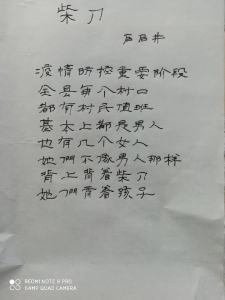 柴刀
石石井
疫情防控重要阶段
全县每个村口
都有村民值班
基本上都是男人
也有几个女人
她們不像男人那样
背上背着柴刀
她們背着孩子
REDMI NOTE 8 PRO
64MP QUAD CAMERA